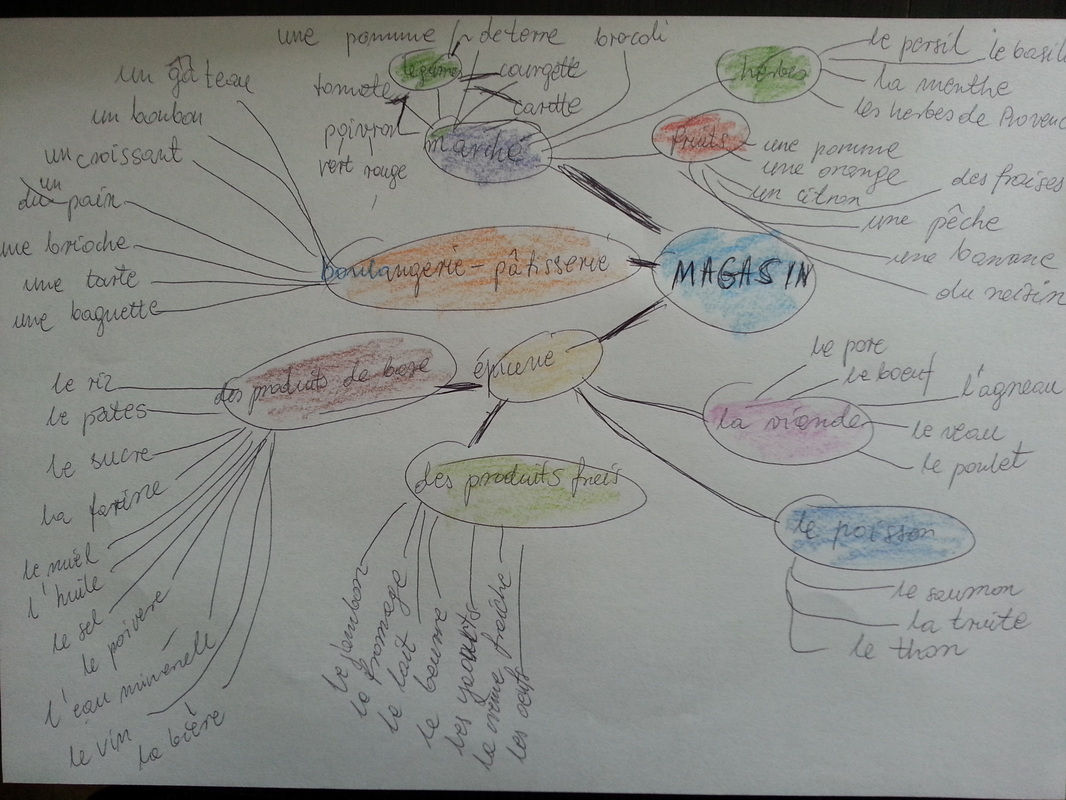 une pomme de terre
brocoli
légume
courgette
carotte
tomate
poivron
vert rouge
marché
herbes
le persil
le basil
la menthe
les herbes de Provenc
fruits
une pomme
une orange
un citron
des fraises
une pêche
une banane
du
un gâteau
un bonbon
un croissant
un
pain
une brioche
une tarte
une baguette
boulangerie - pâtisserie
MAGASIN
épicerie
des produits de base
le riz
le pâtes
le sucre
la farine
le miel
l'huile
le sel
le poivere
l'eau minerell
le vin
la bière
des produits frais
le jambon
le fromage
le lait
le beurre
les yaourts
la crème fraîche
les oeufs
la viande
le porc
le boeuf
l'agneau
le veau
le poulet
le poisson
le saumon
la truite
le thon